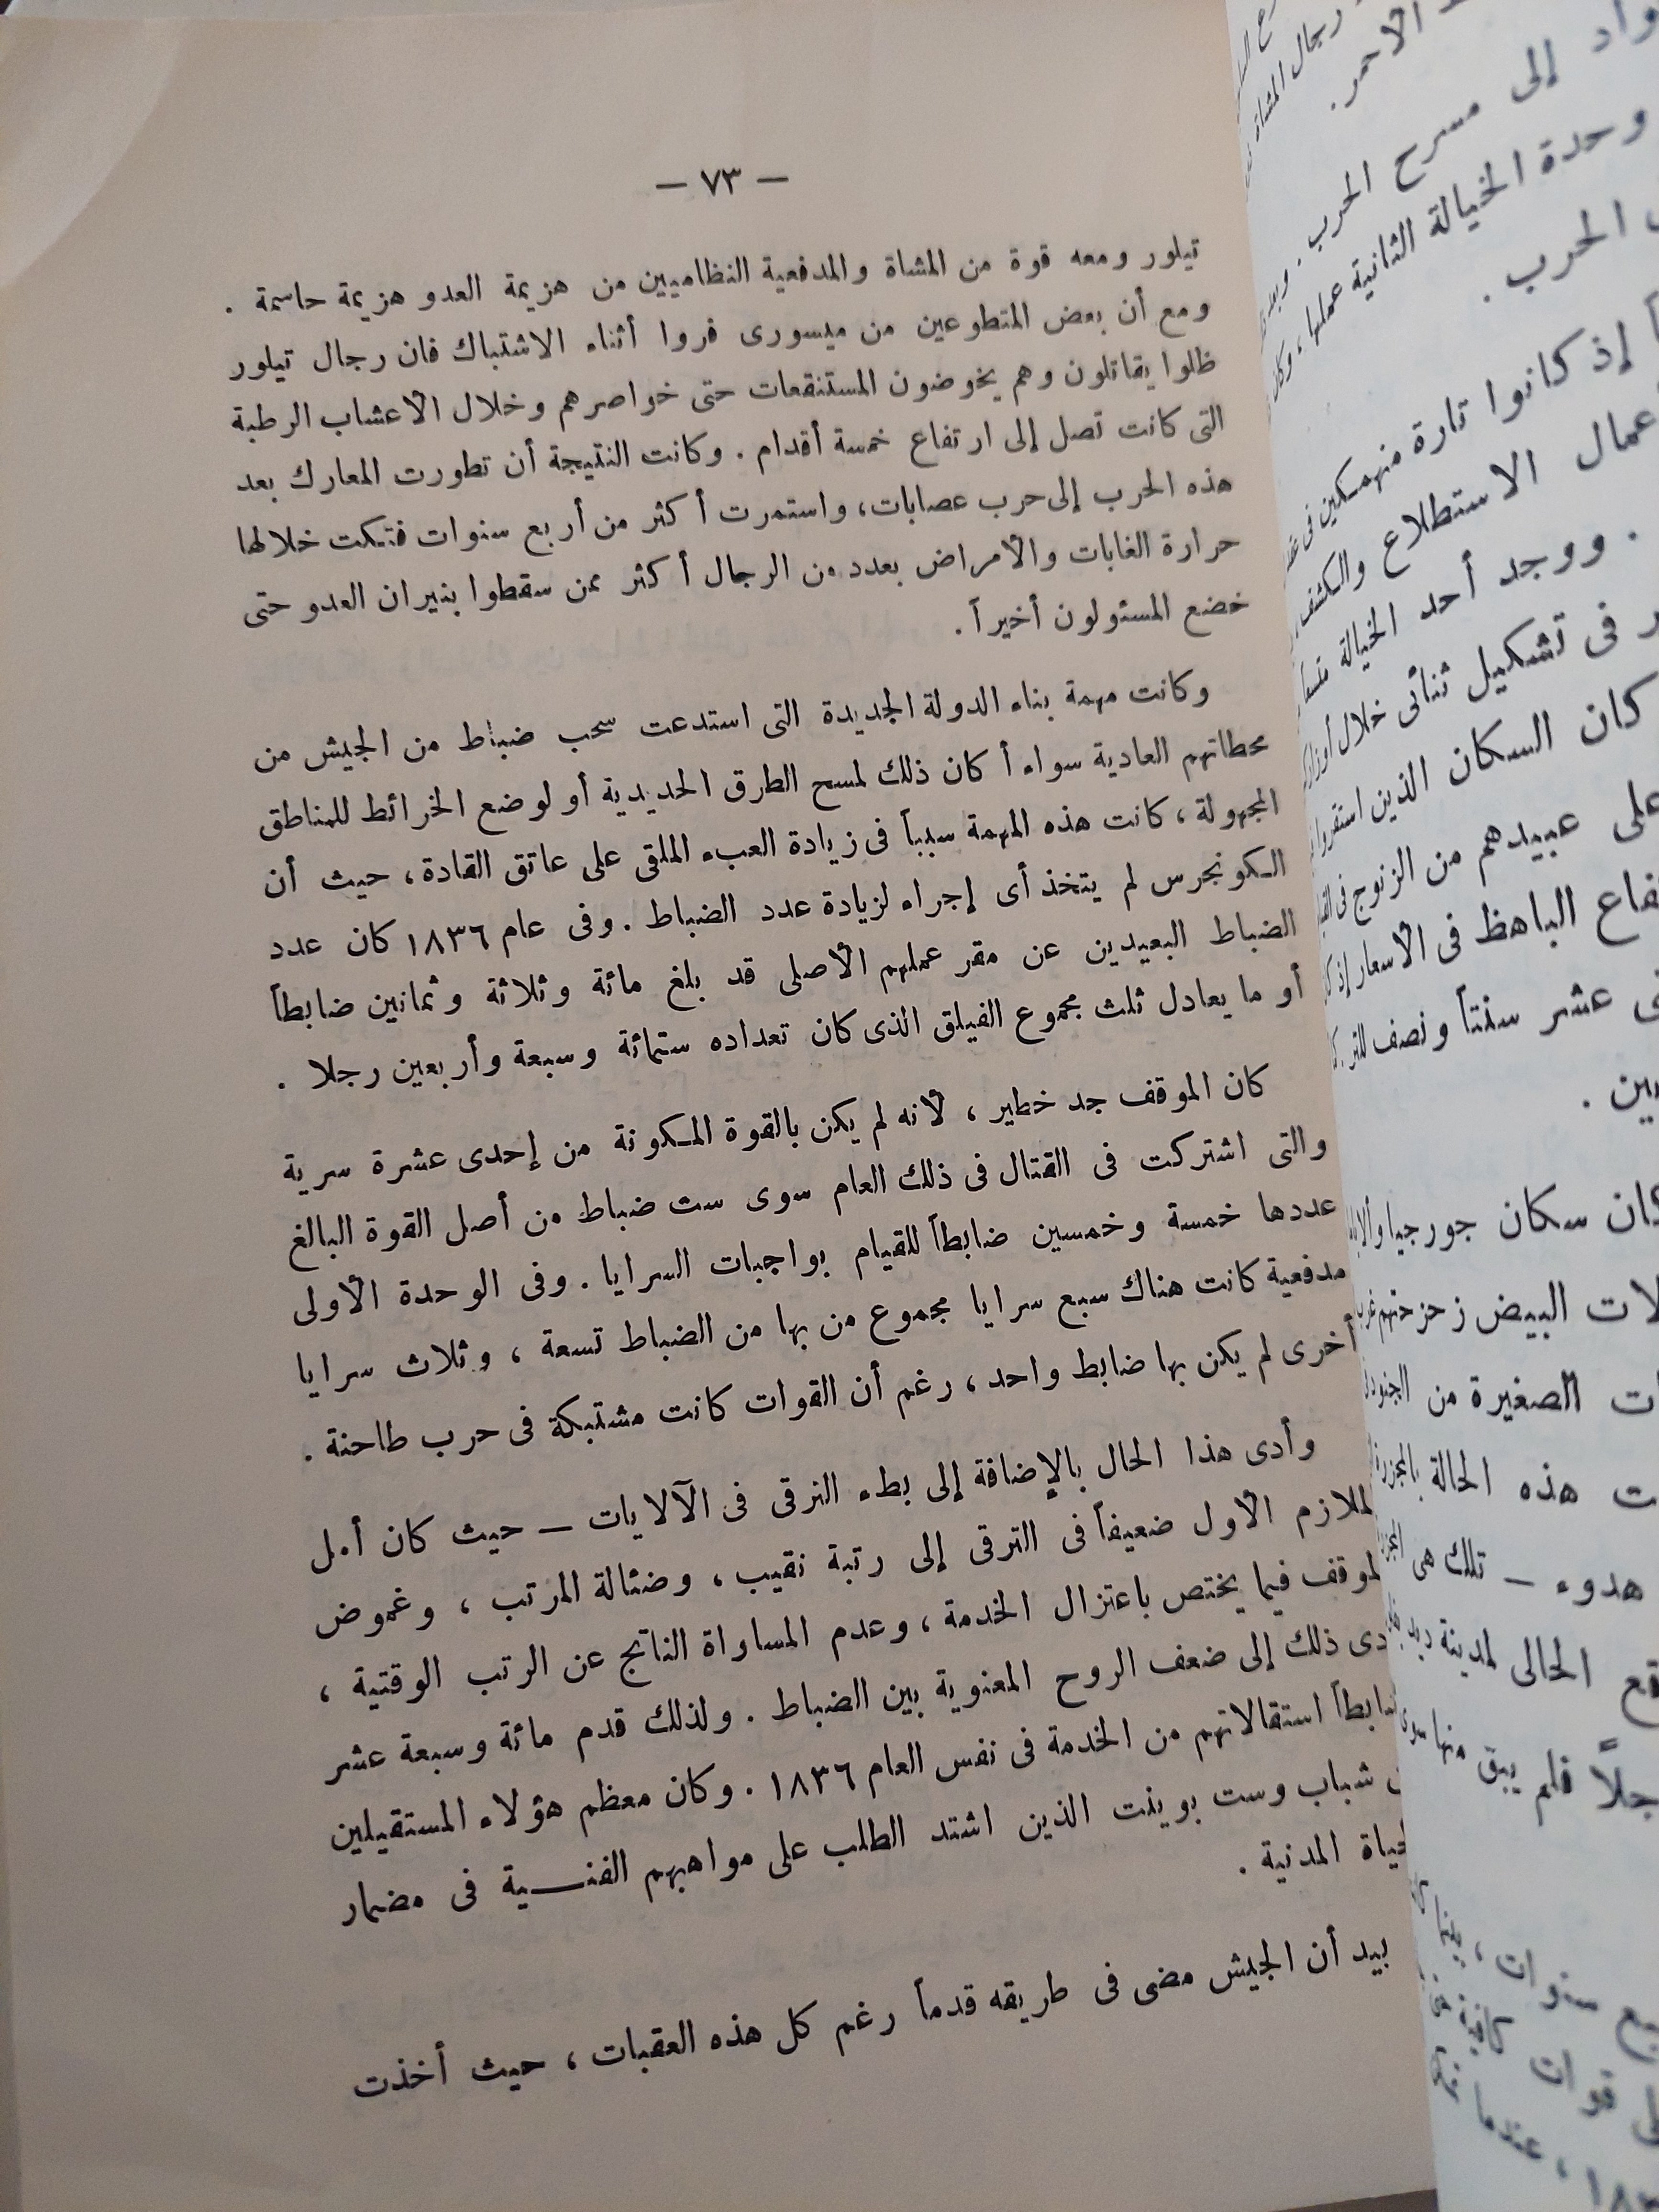 — ٧٣ —
تيلور ومعه قوة من المشاة والمدفعية النظاميين من هزيمة العدو هزيمة حاسمة .
ومع أن بعض المتطوعين من ميسورى فروا أثناء الاشتباك فان رجال تيلور
ظلوا يقاتلون وهم يخوضون المستنقعات حتى خواصرهم وخلال الاعشاب الرطبة
التى كانت تصل إلى ارتفاع خمسة أقدام . وكانت النتيجة أن تطورت المعارك بعد
هذه الحرب إلى حرب عصابات، واستمرت أكثر من أربع سنوات فتكت خلالها
حرارة الغابات والأمراض بعدد من الرجال أكثر ممن سقطوا بنيران العدو حتى
خضع المسئولون أخيراً .
وكانت مهمة بناء الدولة الجديدة التى استدعت سحب ضباط من الجيش من
محطاتهم العادية سواء أكان ذلك لمسح الطرق الحديدية أو لوضع الخرائط للمناطق
المجهولة ، كانت هذه المهمة سبباً فى زيادة العبء الملقى على عاتق القادة ، حيث أن
الكونجرس لم يتخذ أى إجراء لزيادة عدد الضباط . وفى عام ١٨٣٦ كان عدد
الضباط البعيدين عن مقر عملهم الأصلى قد بلغ مائة وثلاثة وثمانين ضابطاً
أو ما يعادل ثلث مجموع الفيلق الذى كان تعداده ستمائة وسبعة وأربعين رجلا .
كان الموقف جد خطير ، لأنه لم يكن بالقوة المكونة من إحدى عشرة سرية
والتى اشتركت فى القتال فى ذلك العام سوى ست ضباط من أصل القوة البالغ
عددها خمسة وخمسين ضابطاً للقيام بواجبات السرايا . وفى الوحدة الأولى
مدفعية كانت هناك سبع سرايا مجموع من بها من الضباط تسعة ، وثلاث سرايا
أخرى لم يكن بها ضابط واحد ، رغم أن القوات كانت مشتبكة فى حرب طاحنة .
وأدى هذا الحال بالإضافة إلى بطء الترقى فى الآلايات — حيث كان أمل
لملازم الأول ضعيفاً فى الترقى إلى رتبة نقيب ، وضئالة المرتب ، وغموض
لموقف فيما يختص باعتزال الخدمة ، وعدم المساواة الناتج عن الرتب الوقتية ،
دى ذلك إلى ضعف الروح المعنوية بين الضباط . ولذلك قدم مائة وسبعة عشر
ضابطاً استقالاتهم من الخدمة فى نفس العام ١٨٣٦ . وكان معظم هؤلاء المستقيلين
شباب وست بوينت الذين اشتد الطلب على مواهبهم الفنية فى مضمار
لحياة المدنية .
بيد أن الجيش مضى فى طريقه قدماً رغم كل هذه العقبات ، حيث أخذت
رجال المشاة
الأحمر .
إلى مسرح الحرب . وبعد
وحدة الخيالة الثانية عملها ، وكان
الحرب .
إذ كانوا تارة منهمكين فى
عمال الاستطلاع والكشف
. ووجد أحد الخيالة
فى تشكيل ثنائى خلال
كان السكان الذين استقروا
على عبيدهم من الزنوج فى
الباهظ فى الأسعار إذ
عشر سنتاً ونصف
كان سكان جورجيا
البيض زحزحتهم
الصغيرة من الجنود
هذه الحالة بالمجزرة
هدوء — تلك هى
الحالى لمدينة
فلم يبق منها سوى
سنوات ، بينما
قوات كافية
، عندما